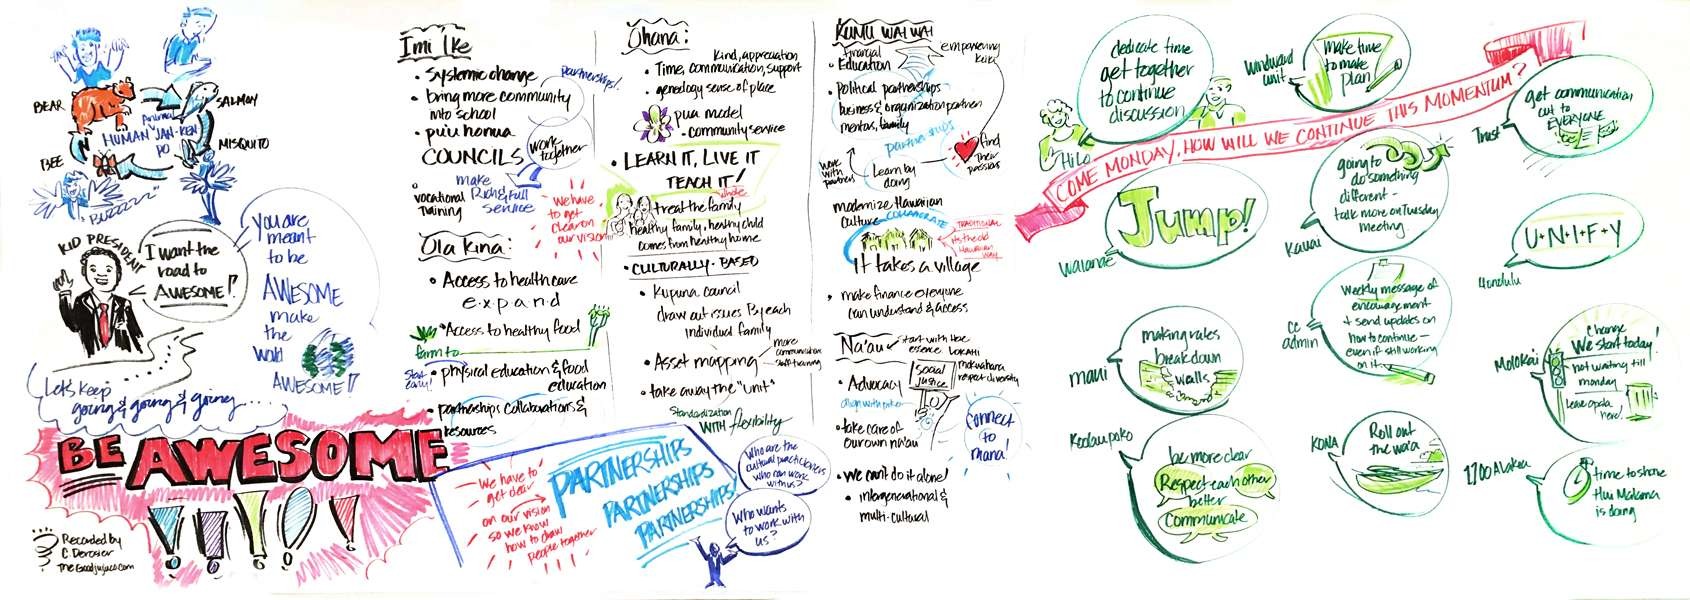 BEAR
SALMON
Animal
HUMAN "JAN-KEN
PO
BEE
MISQUITO
"BUZZZZZ"
KID PRESIDENT
I want the
road to
AWESOME!
you are
meant
to be
AWESOME
make
the
world
AWESOME!!
Let's keep
going & going & going....
BE AWESOME
!!!!!
Recorded by
C Derosier
Imi 'Ike
• Systemic change
• bring more community
into school
• pu'u honua
COUNCILS
partnerships!
work
together
make
Rich & full
service
• vocational
training
we have
to get
clear on
our vision
Ola Kina:
• Access to healthcare
e·x·p·a·n·d
• Access to healthy food
farm to
Start
early!
• physical education & food
education
• partnerships collaborations &
resources
we have to
get clear
on our vision
so we know
how to draw
people together
PARTNERSHIPS
PARTNERSHIPS
PARTNERSHIPS!
Who are the
cultural practitioners
who can work
with us?
Who wants
to work with
us?
Ohana:
Kind, appreciation
• Time, communication, support
• geneology sense of place
pua model
- community service
• LEARN IT, LIVE IT
TEACH IT!
whole
treat the family
healthy family, healthy child
comes from healthy home
• CULTURALLY-BASED
• Kupuna council
draw out issues by each
individual family
• Asset mapping
more
communication
staff training
• take away the "unit"
standardization
WITH flexibility
KUMU WAI WAI
financial
• Education
empowering
• Political partnerships
business & organization partner
mentors, family
partnerships
work
with
partners
Learn by
doing
find
their
passions
modernize Hawaiian
Culture
COLLABORATE
TRADITIONAL
its the old
Hawaiian
way
It takes a village
• make finance everyone
can understand & access
Na'au
start with the
essence LOKAHI
respect diversity
social
justice
• Advocacy
• take care of
our own na'au
Connect
to
mana!
• we can't do it alone!
• intergenerational &
multi-cultural
COME MONDAY, HOW WILL WE CONTINUE THIS MOMENTUM?
dedicate time
get together
to continue
discussion
Hilo
Windward
unit
make time
to make
plan
get communication
out to
EVERYONE
Trust
Jump!
Waianae
going to
do something
different -
talk more on Tuesday
meeting
Kauai
U·N·I·F·Y
Honolulu
making rules
break down
walls
maui
Weekly message of
encouragement
+ send updates on
how to continue -
even if still working
on it...
cc
admin
Change
We start today!
not waiting till
monday
Leave opala
here!
Molokai
Koolaupoko
be more clear
Respect each other
better
Communicate
KONA
Roll out
the wa'a
1700 Alakea
time to share
Hui Malama
is doing